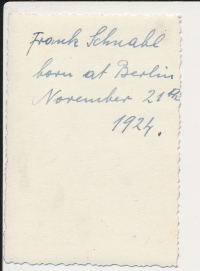 Frank Schnabl
born at Berlin
November 21th
1924.